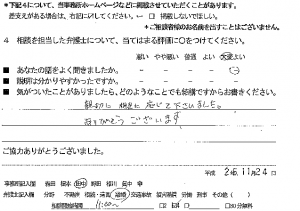 ＊下記４について、当事務所ホームページなどに掲載させていただくことがあります。
差支えがある場合は、右記に✓してください。 ←□ 掲載しないでほしい。
＊ご相談者様のお名前を出すことはございません。
４ 相談を担当した弁護士について、当てはまる評価に○をつけてください。
悪い やや悪い 普通 よい 大変よい
■ あなたの話をよく聞きましたか。
■ 説明は分かりやすかったですか。
■ 気がついたことがありましたら、どのようなことでも結構ですからお書きください。
親切に相談に応じて下さいました。
ありがとうございます
ご協力ありがとうございました。
平成 26.11月24日
事務所記入欄
弁護士記入欄 相続 交通事故 労働 刑事 その他（ ）
11:00～ 30分無料